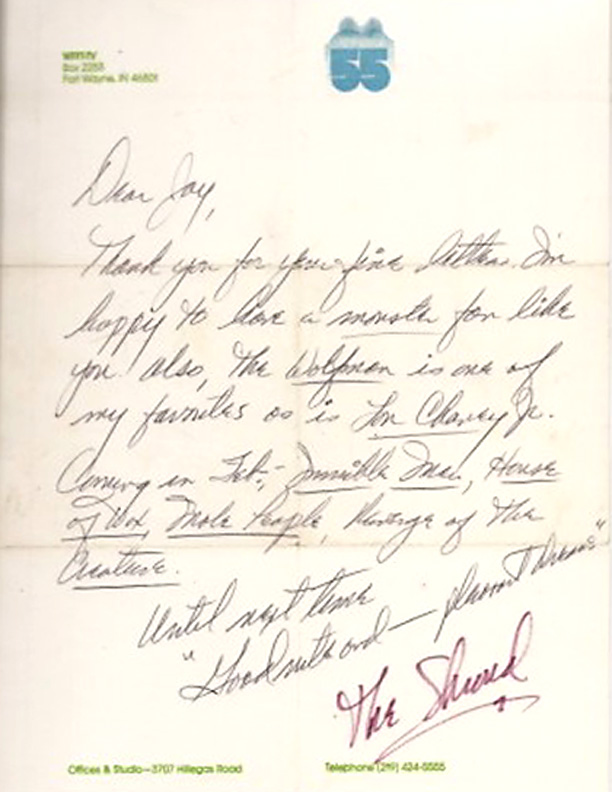 WFFT-TV
Box 2255
Fort Wayne, IN 46801
55
Dear Jay,
Thank you for your fine letters. I'm
happy to have a monster fan like
you. also, the Wolfman is one of
my favorites as is Lon Chaney Jr.
Coming in Feb;- Invisible Man, House
of Wax, Mole People, Revenge of the
Creature.
Until next time
"Goodnite and — pleasant dreams"
The Shroud
Offices & Studio—3707 Hillegas Road
Telephone (219) 424-5555